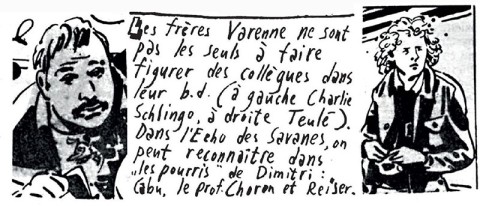 Les frères Varenne ne sont
pas les seuls à faire
figurer des collègues dans
leur b.d. (à gauche Charlie
Schlingo, à droite Teulé).
Dans l'Echo des Savanes, on
peut reconnaître dans
"les pourris" de Dimitri :
Cabu, le prof. Choron et Reiser.